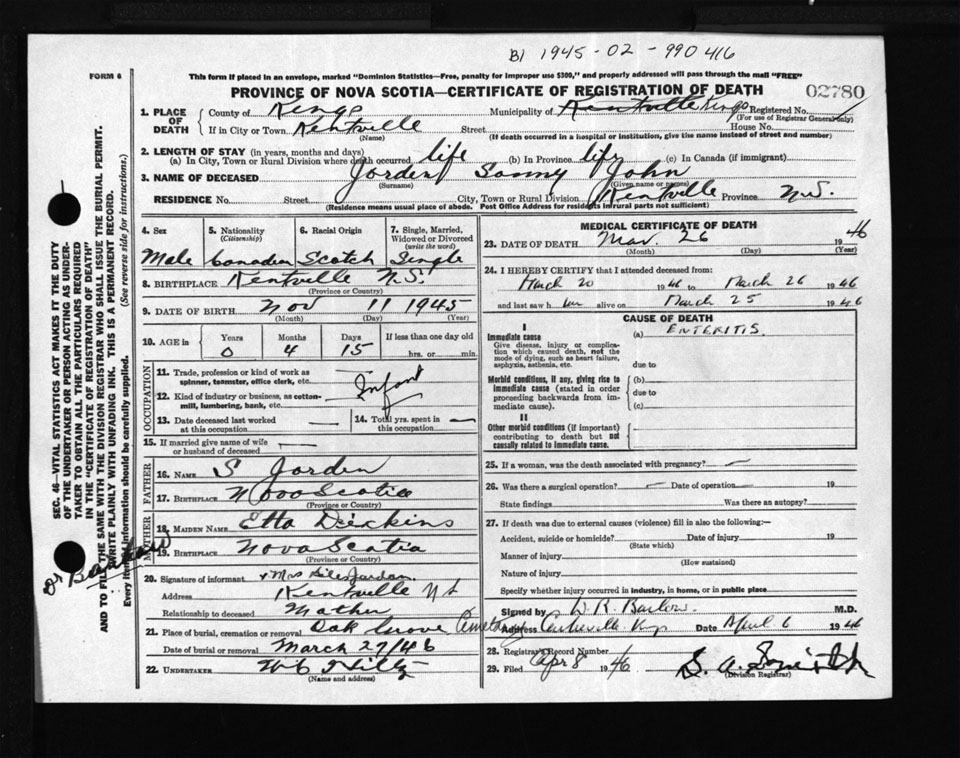 B1 1945-02-990416
FORM 6
This form if placed in an envelope, marked "Dominion Statistics—Free, penalty for improper use $300," and properly addressed will pass through the mail "FREE"
PROVINCE OF NOVA SCOTIA—CERTIFICATE OF REGISTRATION OF DEATH
02780
1. PLACE OF DEATH
County of Kings Municipality of Kentville Kings Registered No.
(For use of Registrar General only)
If in City or Town Kentville Street House No.
(If death occurred in a hospital or institution, give the name instead of street and number)
2. LENGTH OF STAY (in years, months and days)
(a) In City, Town or Rural Division where death occurred life (b) In Province life (c) In Canada (if immigrant)
3. NAME OF DECEASED Jorden Sonny John
(Surname) (Given name or names)
RESIDENCE No. Street City, Town or Rural Division Kentville Province N.S.
(Residence means usual place of abode. Post Office Address for residents in rural parts not sufficient)
4. Sex 5. Nationality (Citizenship) 6. Racial Origin 7. Single, Married, Widowed or Divorced (write the word)
Male Canadian Scotch Single
8. BIRTHPLACE Kentville N.S.
(Province or Country)
9. DATE OF BIRTH Nov 11 1945
(Month) (Day) (Year)
10. AGE in Years Months Days If less than one day old
0 4 15 hrs. or min.
OCCUPATION
11. Trade, profession or kind of work as spinner, teamster, office clerk, etc.
Infant
12. Kind of industry or business, as cotton-mill, lumbering, bank, etc.
13. Date deceased last worked at this occupation — 14. Total yrs. spent in this occupation —
15. If married give name of wife or husband of deceased —
FATHER
16. NAME S Jorden
17. BIRTHPLACE Nova Scotia
MOTHER
18. MAIDEN NAME Etta Dickins
19. BIRTHPLACE Nova Scotia
(Province or Country)
20. Signature of informant x Mrs Jordan
Address Kentville N S
Relationship to deceased Mother
21. Place of burial, cremation or removal Oak Grove Cemetery
Date of burial or removal March 27/46
22. UNDERTAKER
(Name and address)
MEDICAL CERTIFICATE OF DEATH
23. DATE OF DEATH Mar. 26 1946
(Month) (Day) (Year)
24. I HEREBY CERTIFY that I attended deceased from:
March 20 1946 to March 26 1946
and last saw him alive on March 25 1946
CAUSE OF DEATH
I
Immediate cause (a) ENTERITIS.
Give disease, injury or complication which caused death, not the mode of dying, such as heart failure, asphyxia, asthenia, etc. due to
Morbid conditions, if any, giving rise to immediate cause (stated in order proceeding backwards from immediate cause). (b)
due to
(c)
II
Other morbid conditions (if important) contributing to death but not causally related to immediate cause.
25. If a woman, was the death associated with pregnancy? —
26. Was there a surgical operation? — Date of operation — 19
State findings Was there an autopsy?
27. If death was due to external causes (violence) fill in also the following:—
Accident, suicide or homicide? Date of injury 19
(State which)
Manner of injury
(How sustained)
Nature of injury
Specify whether injury occurred in industry, in home, or in public place
Signed by W. R. Barlow M.D.
Address Date April 6 1946
28. Registrar's Record Number
29. Filed Apr 8 1946
(Division Registrar)
SEC. 46—VITAL STATISTICS ACT MAKES IT THE DUTY OF THE UNDERTAKER OR PERSON ACTING AS UNDERTAKER TO OBTAIN ALL THE PARTICULARS REQUIRED IN THE "CERTIFICATE OF REGISTRATION OF DEATH" AND TO FILE THE SAME WITH THE DIVISION REGISTRAR WHO SHALL ISSUE THE BURIAL PERMIT.
WRITE PLAINLY WITH UNFADING INK. THIS IS A PERMANENT RECORD.
Every item of information should be carefully supplied. (See reverse side for instructions.)